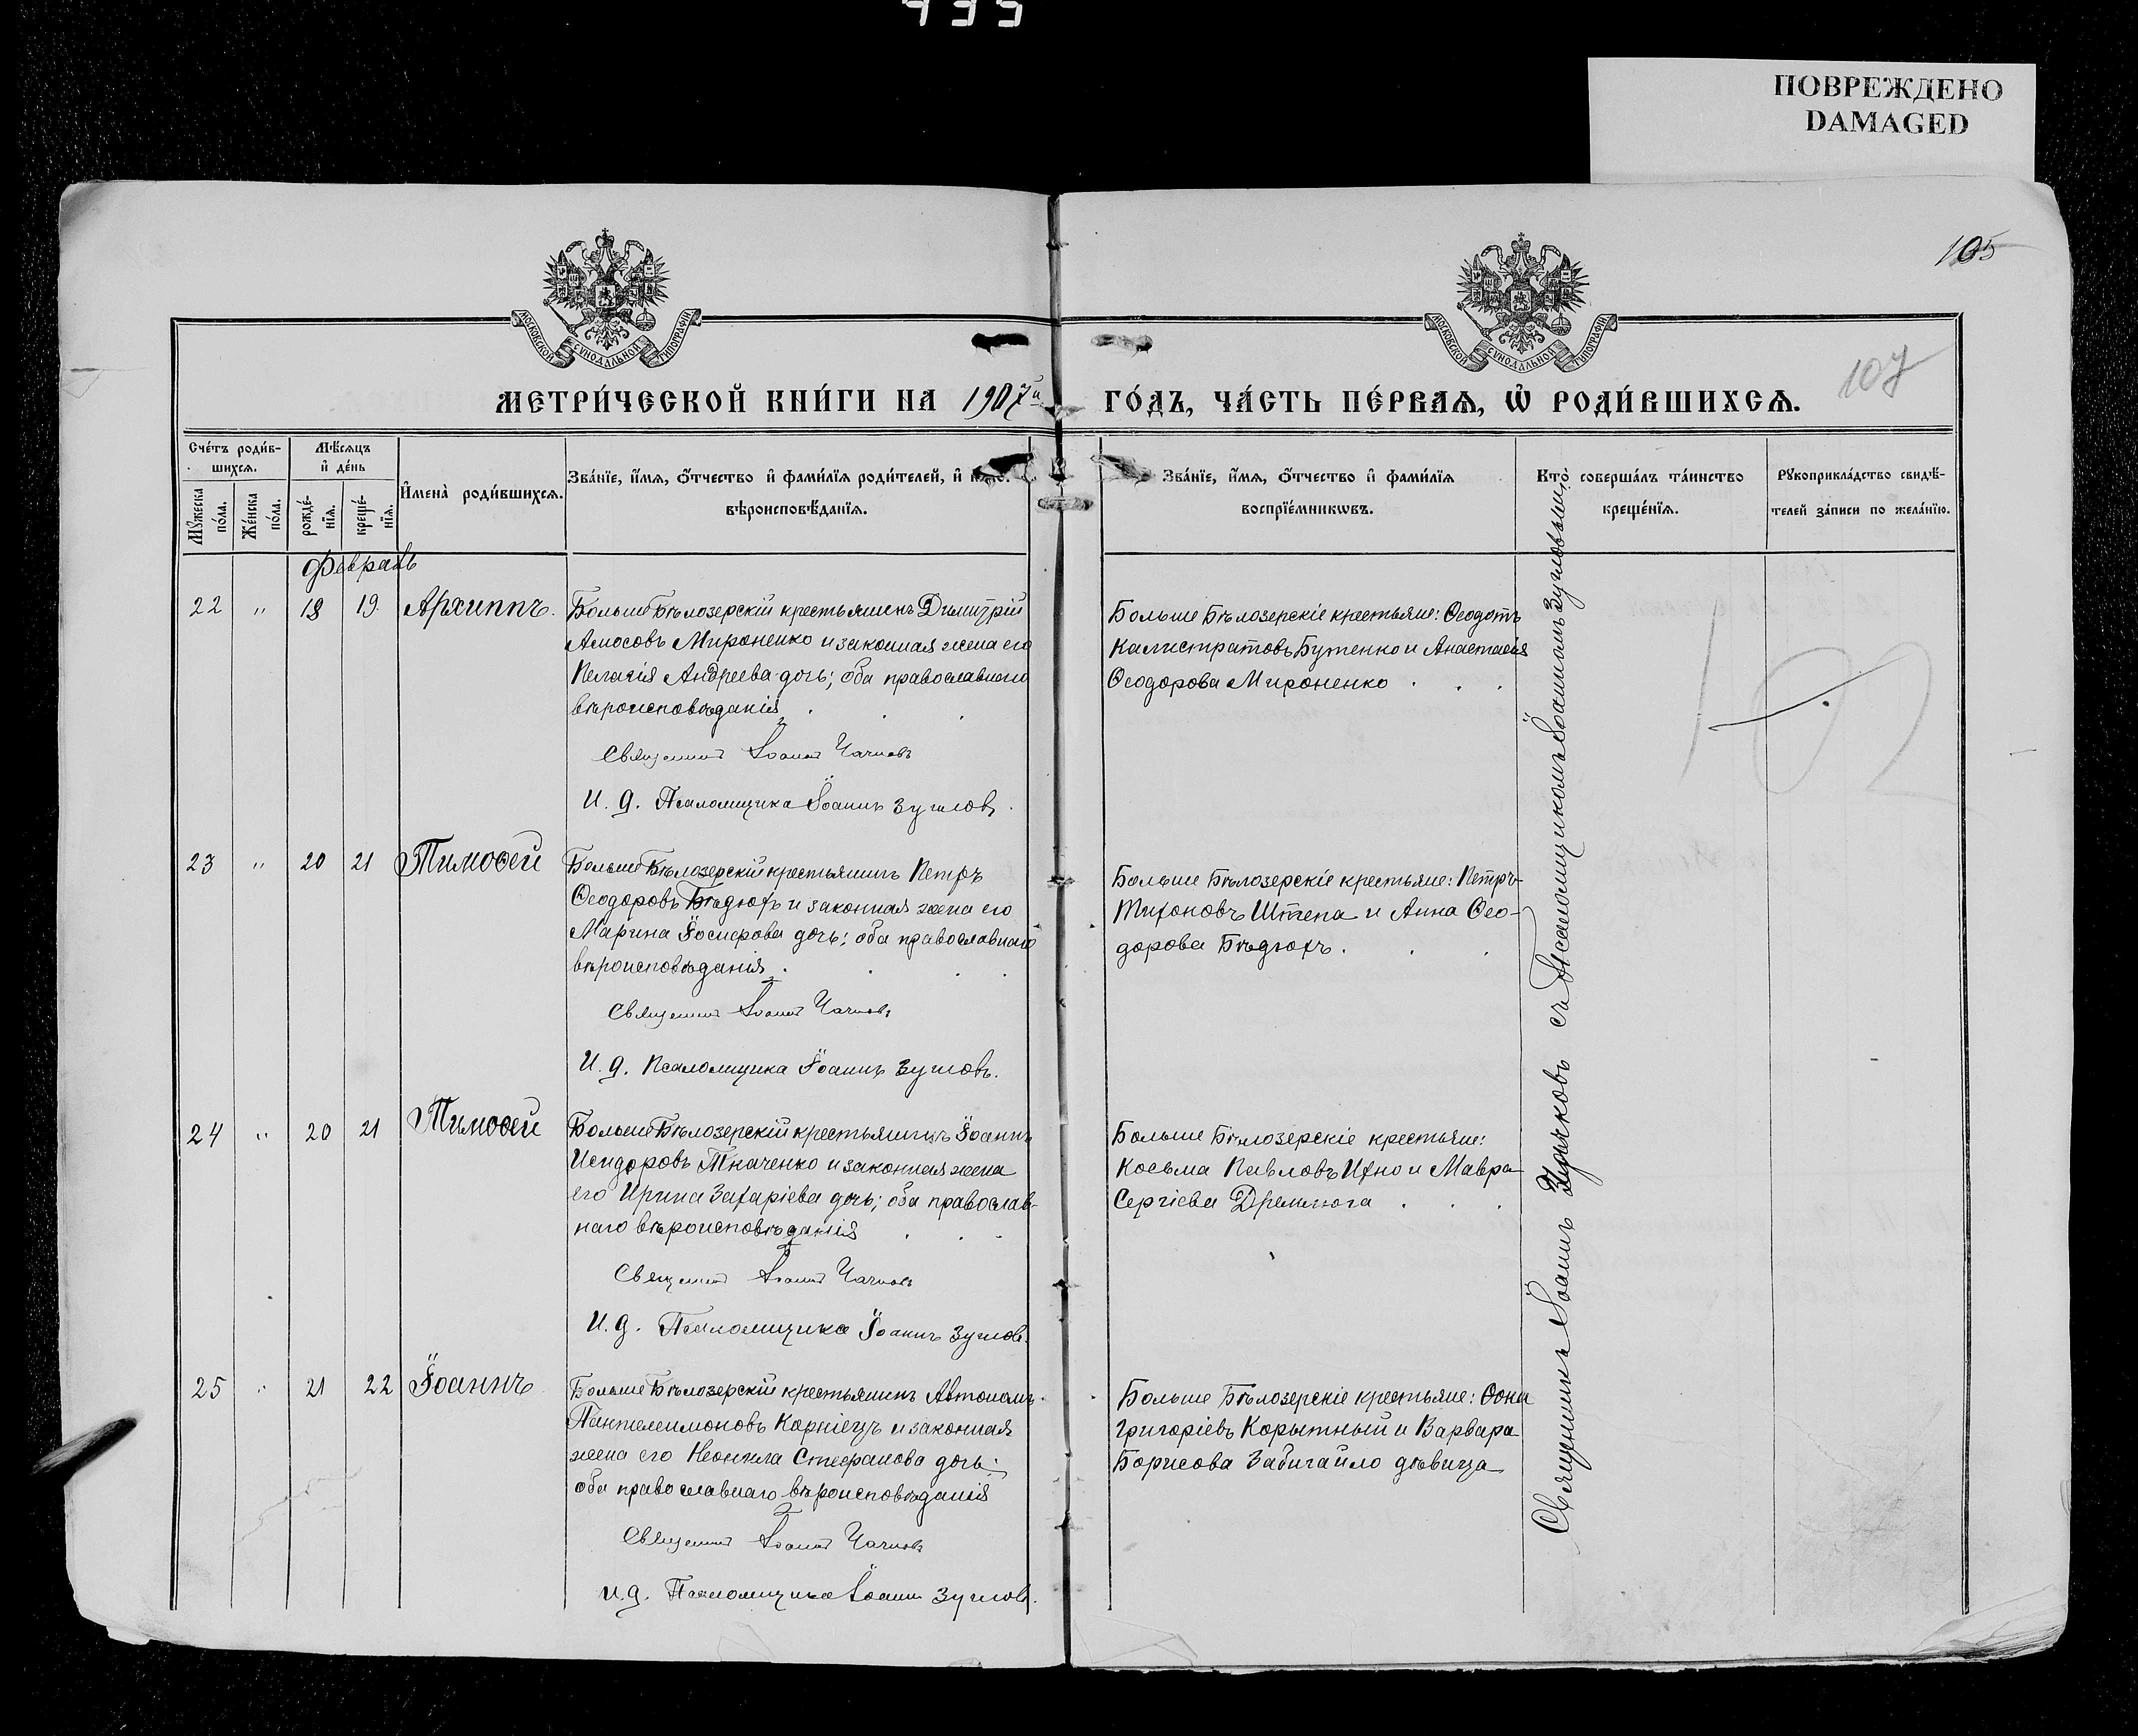 ПОВРЕЖДЕНО
DAMAGED
105
107
102
МОСКОВСКОЙ СѴНОДАЛЬНОЙ ТИПОГРАФІИ
МОСКОВСКОЙ СѴНОДАЛЬНОЙ ТИПОГРАФІИ
МЕТРИ́ЧЕСКОЙ КНИ́ГИ НА 1907й ГО́ДЪ, ЧА́СТЬ ПЕ́РВАѦ, Ѿ РОДИ́ВШИХСѦ.
Сче́тъ роди́в-
шихсѧ.
Мѣ́сѧцъ
и҆ де́нь
Мꙋ́жеска по́ла.
Же́нска по́ла.
рожде́-нїѧ.
креще́-нїѧ.
И҆мена̀ роди́вшихсѧ.
Зва́нїе, и҆́мѧ, ѻ҆́тчество и҆ фами́лїѧ роди́телей, и҆
вѣроисповѣ́данїѧ.
Зва́нїе, и҆́мѧ, ѻ҆́тчество и҆ фами́лїѧ
воспрїе́мникѡвъ.
Кто̀ соверша́лъ та́инство
креще́нїѧ.
Рꙋкоприкла́дство свидѣ́-
телей за́писи по жела́нїю.
Февраль
22 " 18 19 Архиппъ.
Больше Бѣлозерскій крестьянинъ Димитрій
Амосовъ Мироненко и законная жена его
Пелагія Андреева дочь; оба православнаго
вѣроисповѣданія
Священникъ Іоаннъ
И. д. Псаломщика Іоаннъ Зугловъ.
Больше Бѣлозерскіе крестьяне: Ѳеодотъ
Калистратовъ Бутенко и Анастасія
Ѳеодорова Мироненко
23 " 20 21 Тимоѳей
Больше Бѣлозерскій крестьянинъ Петръ
Ѳеодоровъ Бѣдюхъ и законная жена его
Марина Іосифова дочь; оба православнаго
вѣроисповѣданія.
Священникъ Іоаннъ
И. д. Псаломщика Іоаннъ Зугловъ.
Больше Бѣлозерскіе крестьяне: Петръ
Тихоновъ Штепа и Анна Ѳео-
дорова Бѣдюхъ.
24 " 20 21 Тимоѳей
Больше Бѣлозерскій крестьянинъ Іоаннъ
Исидоровъ Ткаченко и законная жена
его Ирина Захаріева дочь; оба православ-
наго вѣроисповѣданія
Священникъ Іоаннъ
И. д. Псаломщика Іоаннъ Зугловъ.
Больше Бѣлозерскіе крестьяне:
Косьма Павловъ Ихно и Мавра
Сергіева Дремлюга
25 " 21 22 Іоаннъ
Больше Бѣлозерскій крестьянинъ Автономъ
Пантелеимоновъ Корніецъ и законная
жена его Неонила Стефанова дочь;
оба православнаго вѣроисповѣданія
Священникъ Іоаннъ
И. д. Псаломщика Іоаннъ Зугловъ.
Больше Бѣлозерскіе крестьяне: Ѳома
Григоріевъ Корытный и Варвара
Борисова Забигайло дѣвица
Священникъ Іоаннъ съ Псаломщикомъ Іоанномъ Зугловымъ